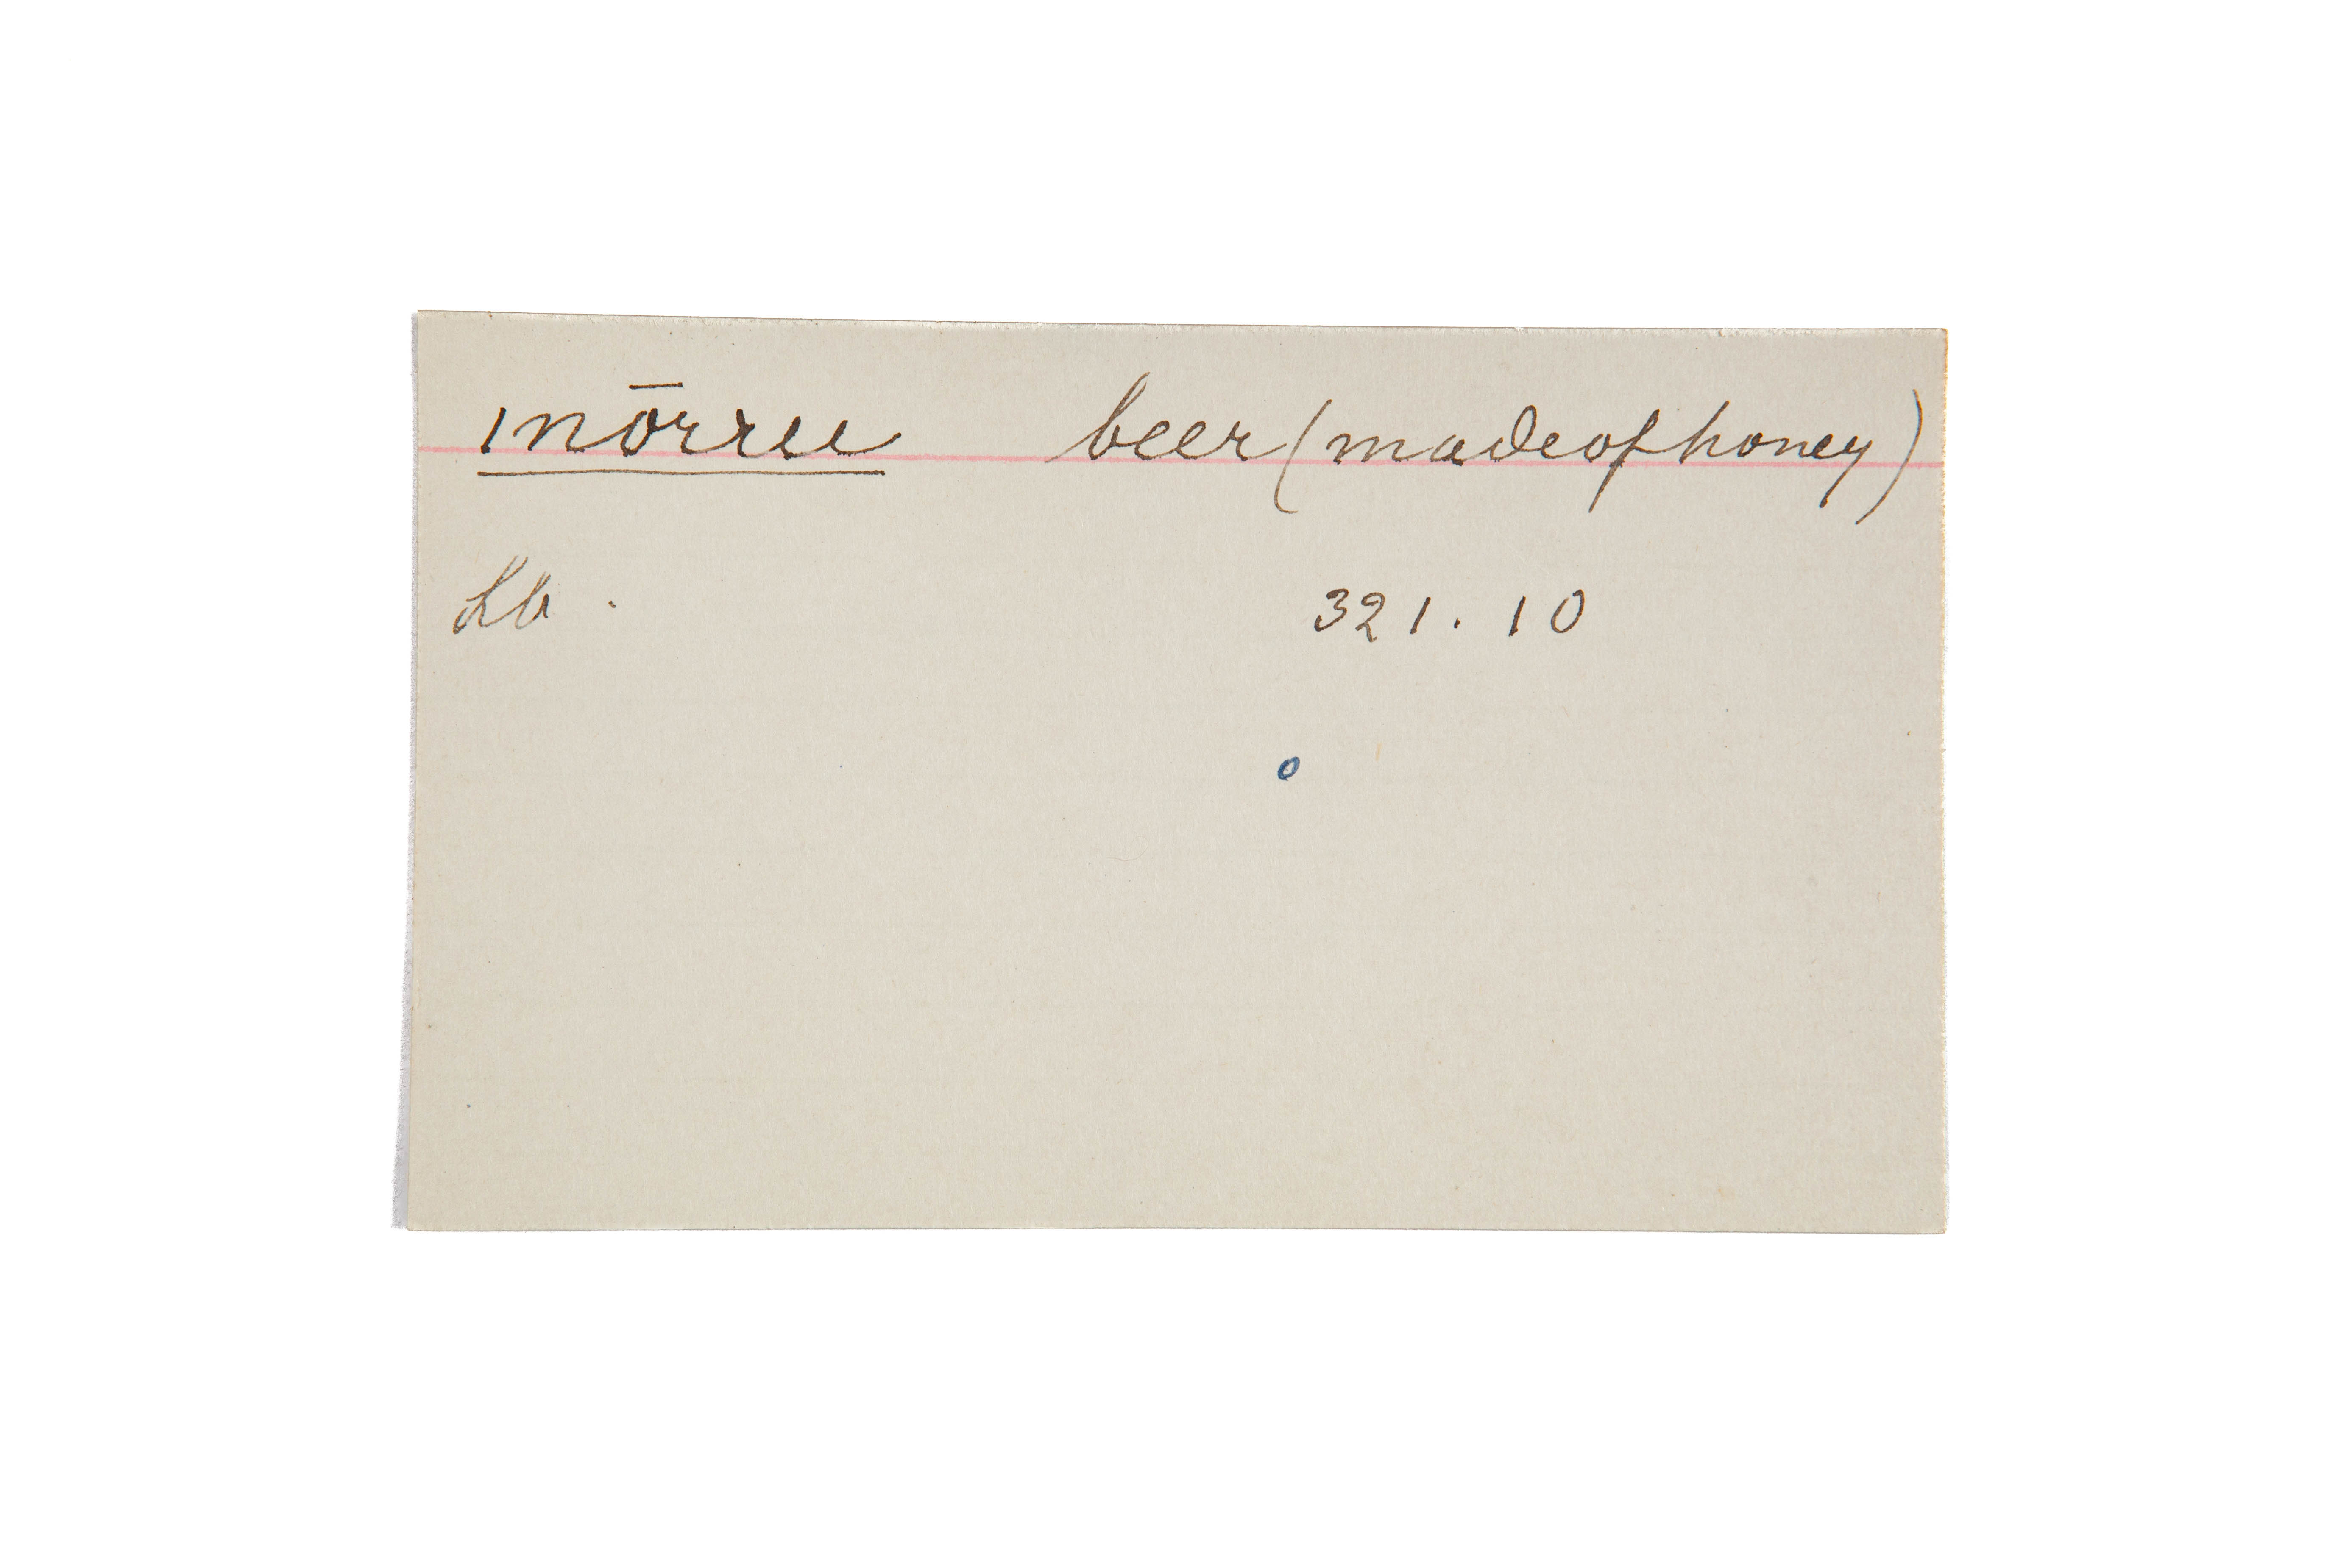 mōrree beer (made of honey)
Lb. 321.10
o